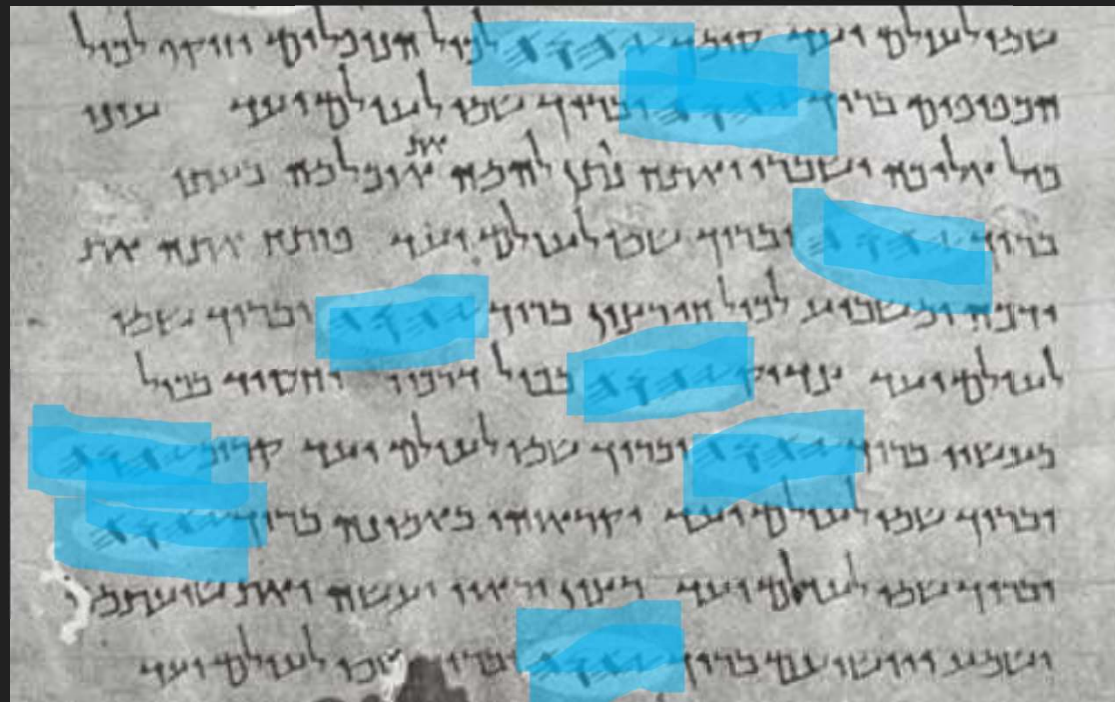 שמו לעולם ועד סומך 𐤉𐤄𐤅𐤄 לכול הנופלים וזוקף לכול
הכפופים ברוך 𐤉𐤄𐤅𐤄 וברוך שמו לעולם ועד עיני
כול אליכה ישברו ואתה נותן להמה את אוכלמה בעתו
ברוך 𐤉𐤄𐤅𐤄 וברוך שמו לעולם ועד פותח אתה את
ידכה ומשביע לכול חי רצון ברוך 𐤉𐤄𐤅𐤄 וברוך שמו
לעולם ועד צדיק 𐤉𐤄𐤅𐤄 בכול דרכיו וחסיד בכול
מעשיו ברוך 𐤉𐤄𐤅𐤄 וברוך שמו לעולם ועד קרוב 𐤉𐤄𐤅𐤄
וברוך שמו לעולם ועד יקראוהו באמונה ברוך 𐤉𐤄𐤅𐤄
וברוך שמו לעולם ועד רצון יראיו יעשה ואת שועתמה
ישמע ויושיעם ברוך 𐤉𐤄𐤅𐤄 שמו לעולם ועד